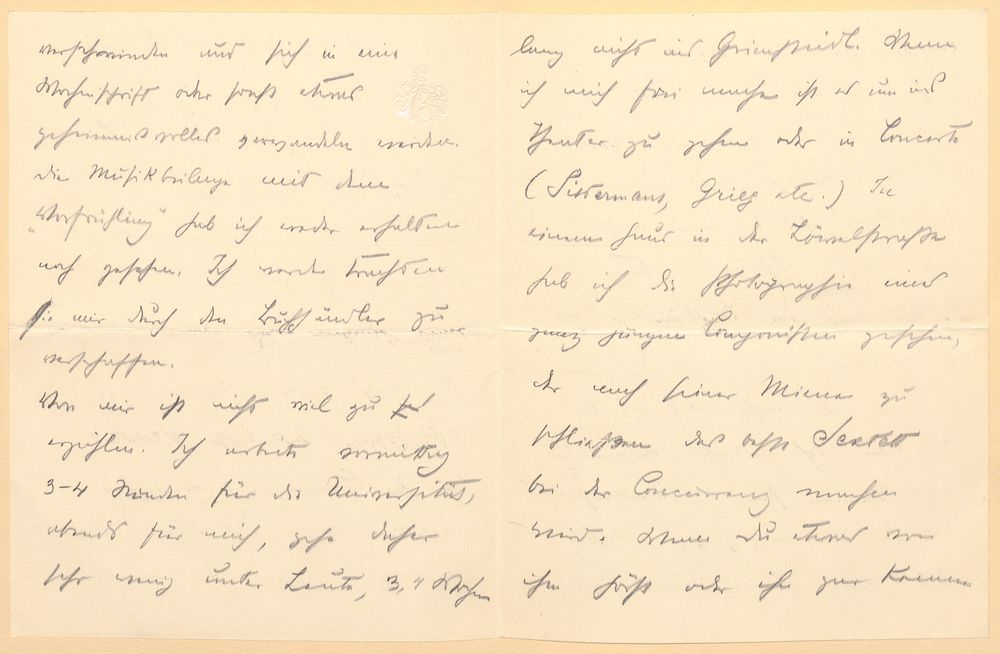 verschwinden und sich in eine
Wochenschrift oder sonst etwas
geheimnisvolles verwandeln werden.
die Musikbeilage mit dem
„Vorfrühling" hab ich weder erhalten
noch gesehen. Ich werde trachten
sie mir durch den Buchhändler zu
verschaffen.
Von mir ist nicht viel zu
erzählen. Ich arbeite vormittag
3-4 Stunden für die Universität,
abends für mich, gehe daher
sehr wenig unter Leute, 3, 4 Wochen
lang nicht ins Griensteidl. Wenn
ich mich frei mache ist es um ins
Theater zu gehen oder in Concerte
(Sistermans, Grieg etc.) In
einem Haus in der Löwelstraße
hab ich die Photographie eines
ganz jungen Componisten gesehen,
der nach seiner Miene zu
schließen das beste Sextett
bei der Concurrenz machen
wird. Wenn Du etwas von
ihm hörst oder ihn gar kennen